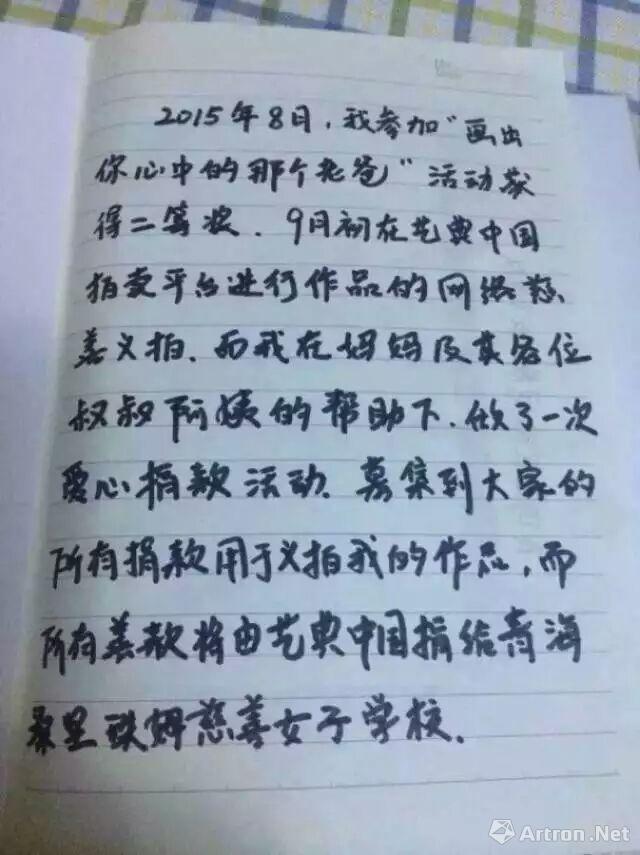 2015年8月,我参加“画出
你心中的那个老爸”活动获
得二等奖.9月初在艺典中国
拍卖平台进行作品的网络慈
善义拍.而我在妈妈及其各位
叔叔阿姨的帮助下.做了一次
爱心捐款活动.募集到大家的
所有捐款用于义拍我的作品,而
所有善款将由艺典中国捐给青海
桑里玛姆慈善女子学校.
Artron.Net